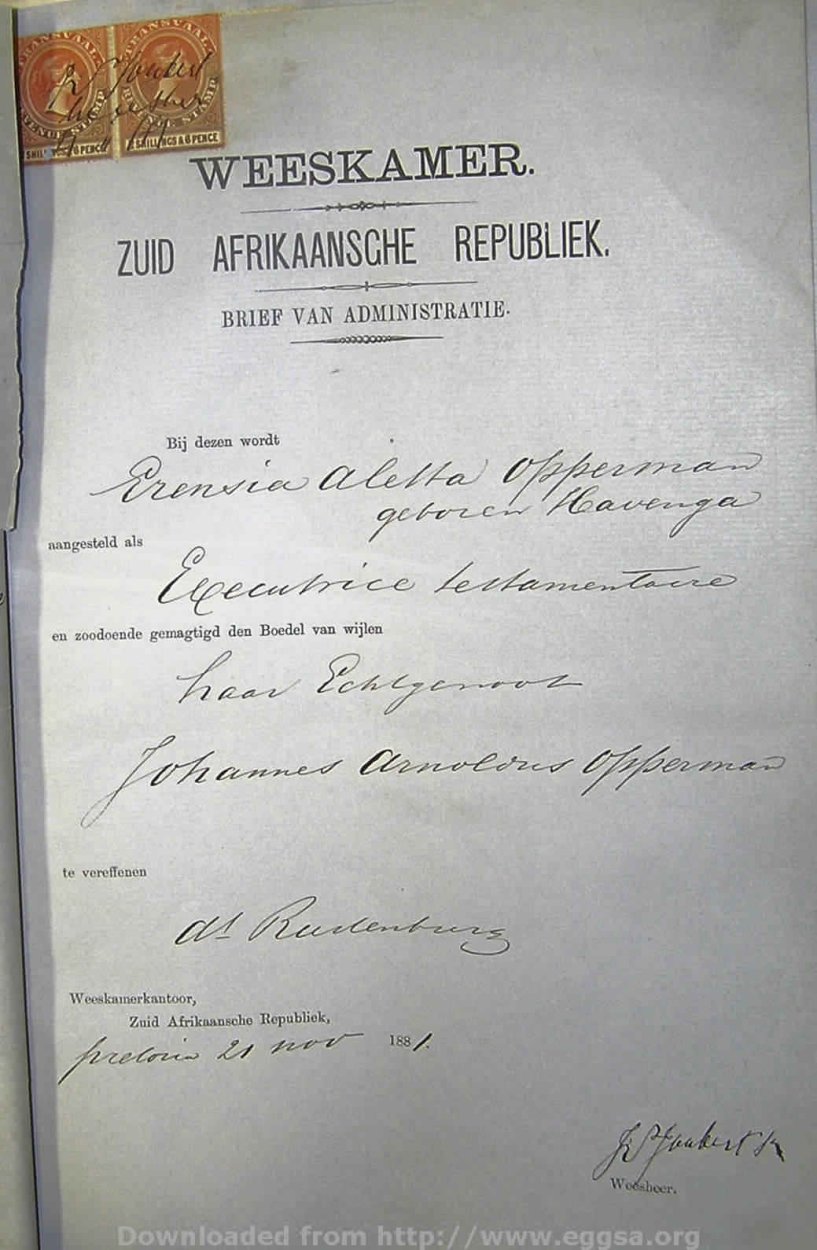 TRANSVAAL TRANSVAAL
REVENUE STAMP
SHILLINGS & 6 PENCE
Joubert
WEESKAMER.
ZUID AFRIKAANSCHE REPUBLIEK.
BRIEF VAN ADMINISTRATIE.
Bij dezen wordt
Erensia Aletta Opperman
geboren Havenga
aangesteld als
Executrice testamentaire
en zoodoende gemagtigd den Boedel van wijlen
haar Echtgenoot
Johannes Arnoldus Opperman
te vereffenen
dt Rustenburg
Weeskamerkantoor,
Zuid Afrikaansche Republiek,
pretoria 21 nov 1881.
Joubert
Weesheer.
Downloaded from http://www.eggsa.org